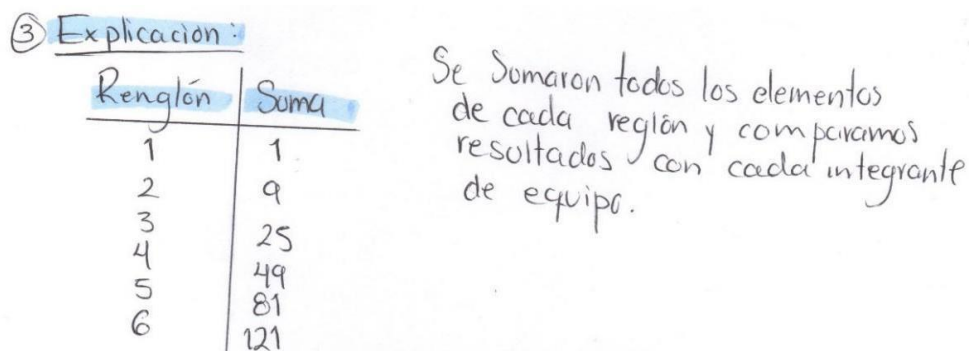 ③ Explicación:
Renglón Suma
1 1
2 9
3 25
4 49
5 81
6 121
Se Sumaron todos los elementos
de cada reglón y comparamos
resultados con cada integrante
de equipo.